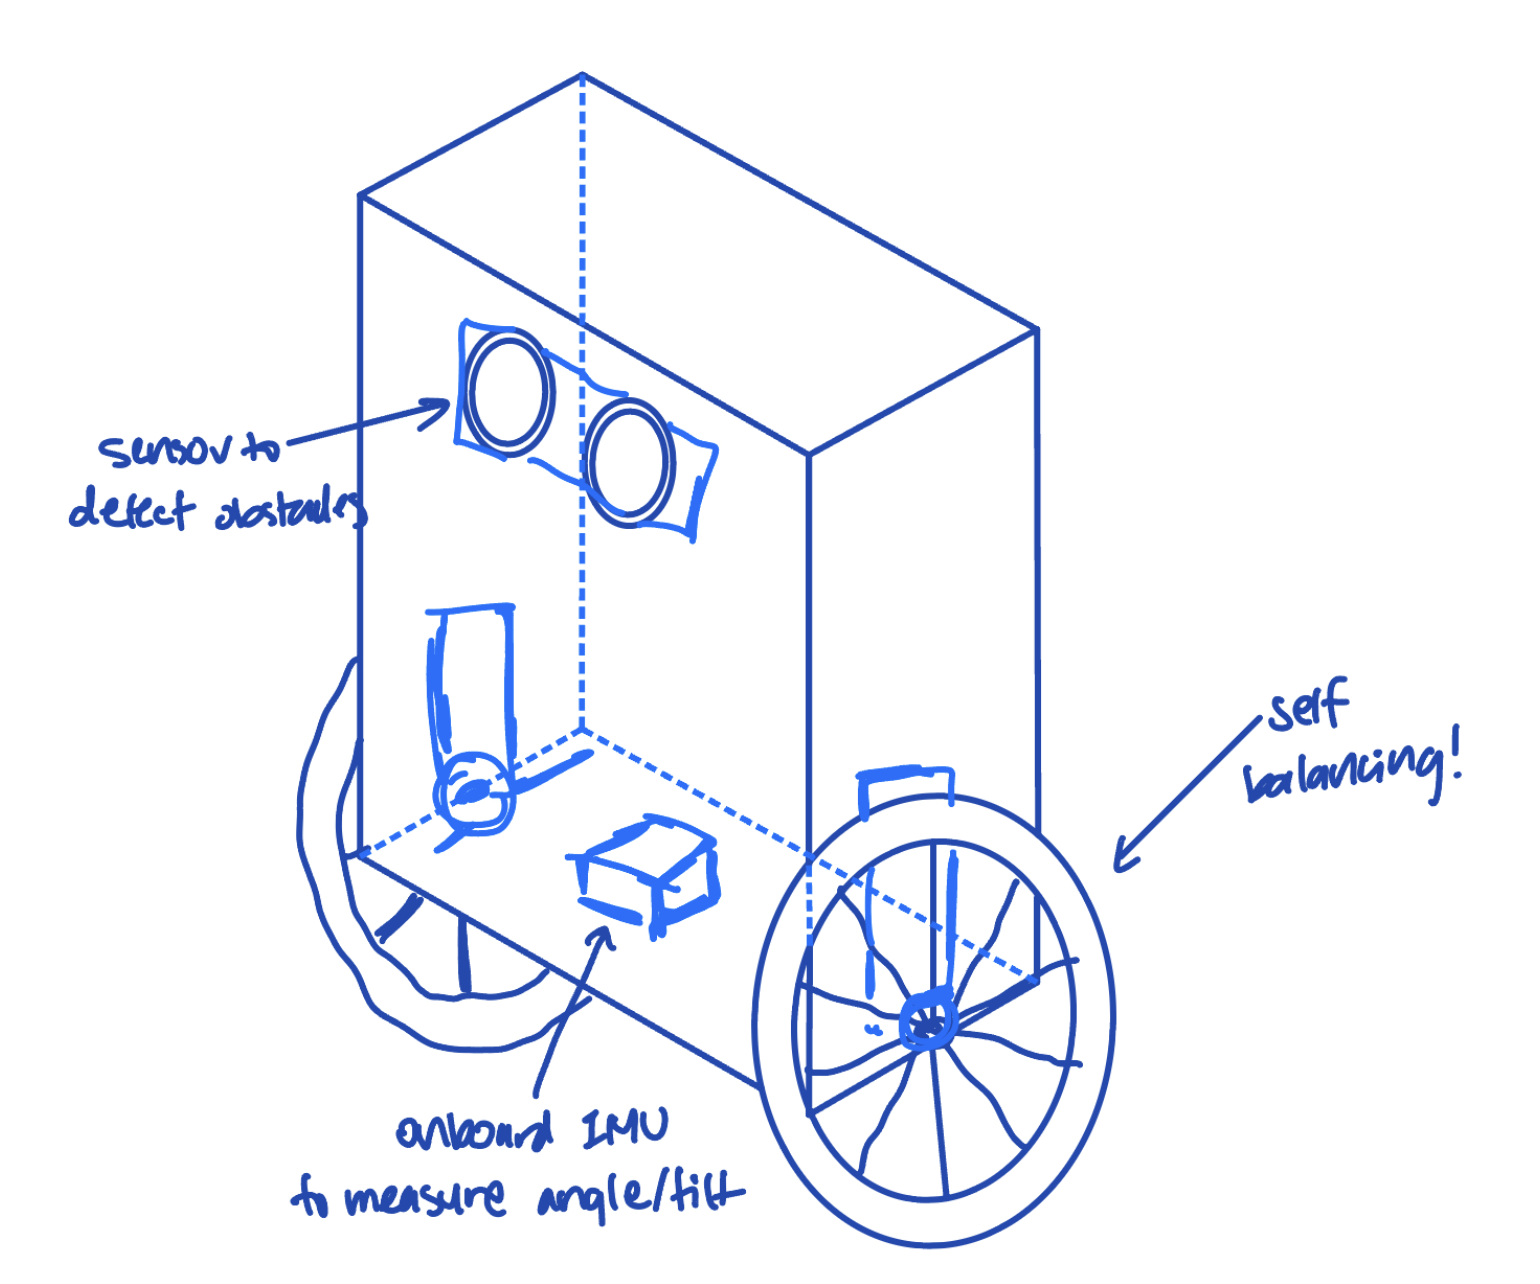 sensor to
detect obstacles
self
balancing!
onboard IMU
to measure angle/tilt